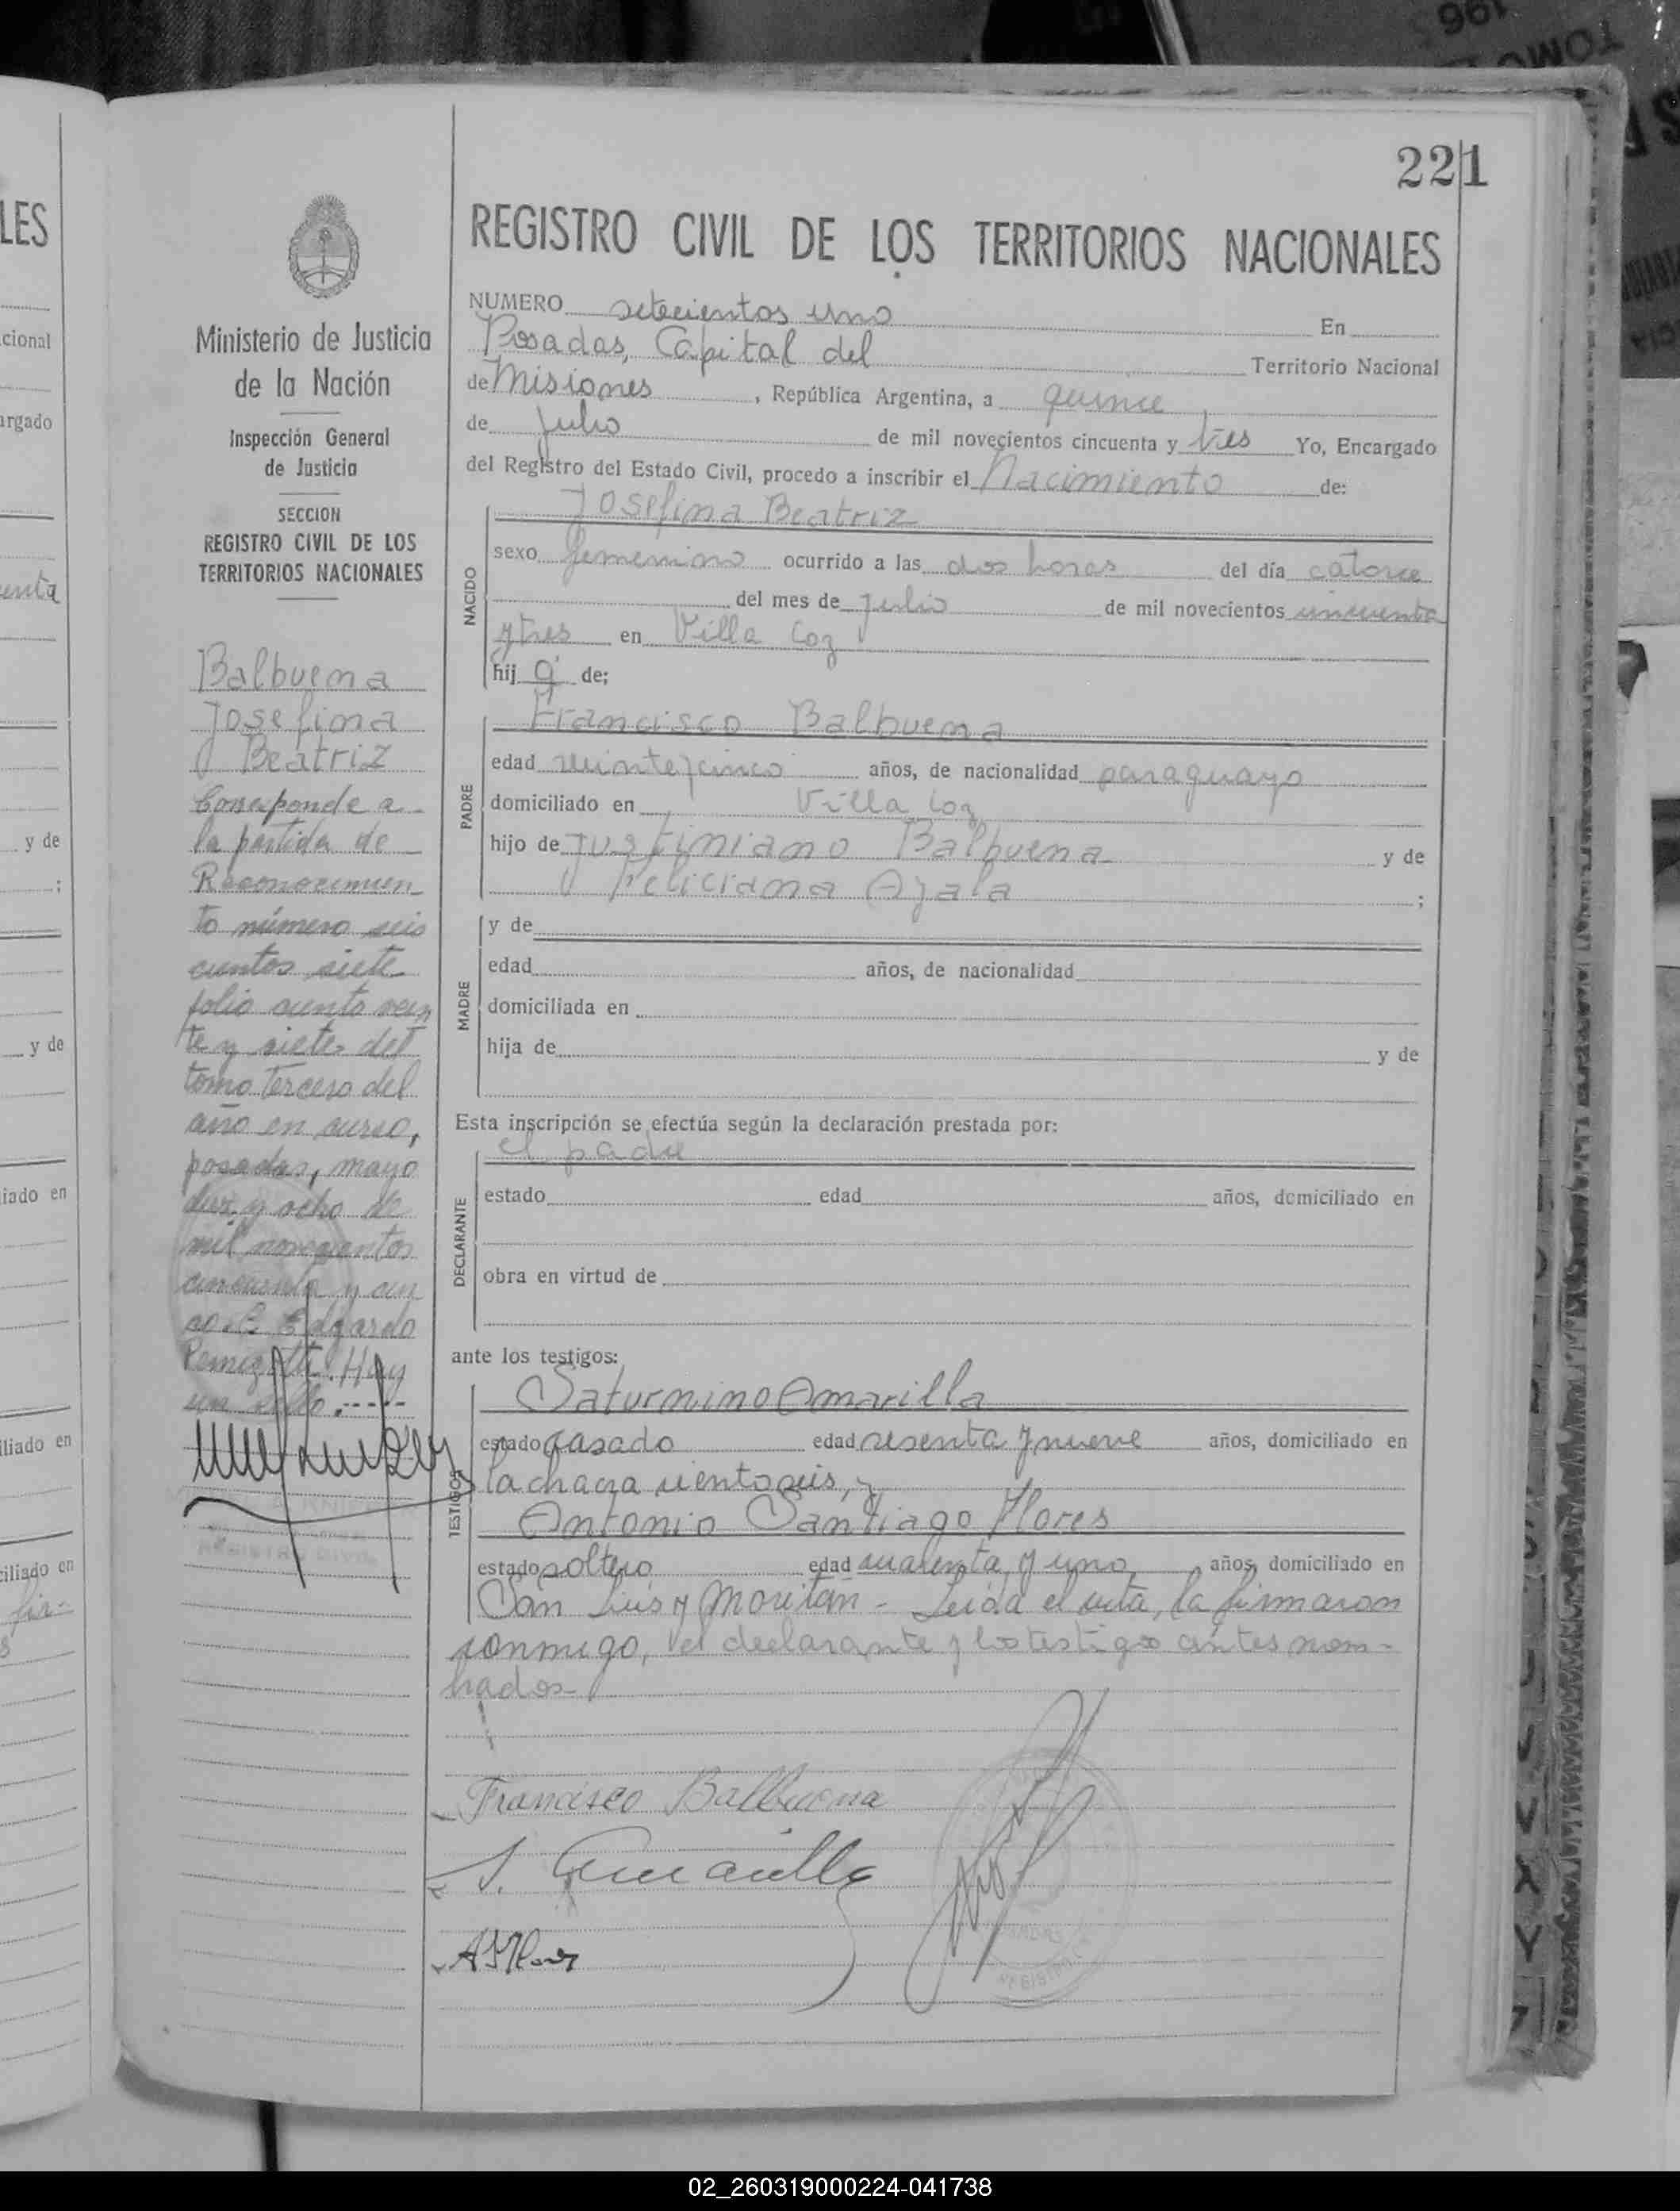 221
REGISTRO CIVIL DE LOS TERRITORIOS NACIONALES
Ministerio de Justicia
de la Nación
Inspección General
de Justicia
SECCION
REGISTRO CIVIL DE LOS
TERRITORIOS NACIONALES
Balbuena
Josefina
Beatriz
Corresponde a
la partida de
Reconocimien
to número seis
cientos siete
folio ciento vein
te y siete del
tomo Tercero del
año en curso,
posadas, mayo
diez y ocho de
mil novecientos
cincuenta y cin
co. Edgardo
Hay
un sello.-----
NUMERO setecientos uno En
Posadas, Capital del Territorio Nacional
de Misiones, República Argentina, a quince
de Julio de mil novecientos cincuenta y tres Yo, Encargado
del Registro del Estado Civil, procedo a inscribir el Nacimiento de:
NACIDO
Josefina Beatriz
sexo femenino ocurrido a las dos horas del día catorce
del mes de julio de mil novecientos cincuenta
y tres en Villa Coz
hij a de;
PADRE
Francisco Balbuena
edad veinte y cinco años, de nacionalidad paraguayo
domiciliado en Villa Coz
hijo de Justiniano Balbuena y de
Feliciana Ayala ;
MADRE
y de
edad años, de nacionalidad
domiciliada en
hija de y de
Esta inscripción se efectúa según la declaración prestada por:
DECLARANTE
el padre
estado edad años, domiciliado en
obra en virtud de
ante los testigos:
TESTIGOS
Saturnino Amarilla
estado casado edad sesenta y nueve años, domiciliado en
la chacra ciento seis, y
Antonio Santiago Flores
estado soltero edad cuarenta y uno años, domiciliado en
San Luis y Moritan - Leída el acta, la firmaron
conmigo, el declarante y los testigos antes nom-
brados-
Francisco Balbuena
S. Amarilla
02_260319000224-041738